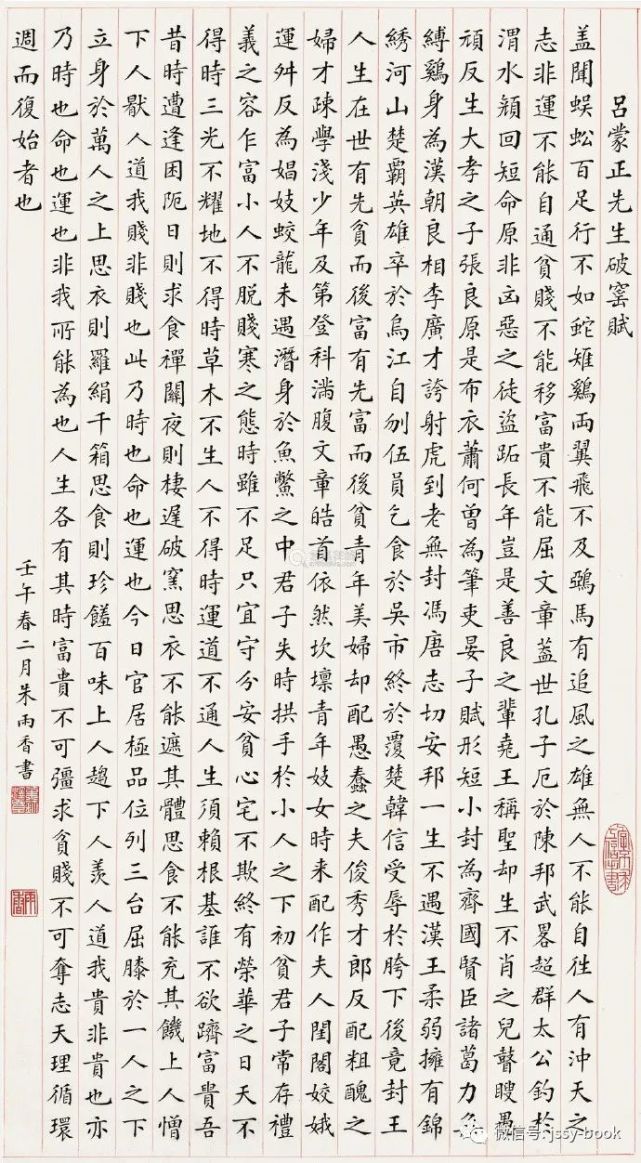 呂蒙正先生破窑賦
盖聞蜈蚣百足行不如蛇雉鷄两翼飛不及鵶馬有追風之雄無人不能自往人有沖天之
志非運不能自通貧賤不能移富貴不能屈文章葢世孔子厄於陳邦武畧超群太公釣於
渭水顔回短命原非凶惡之徒盜跖長年豈是善良之輩堯王稱聖却生不肖之兒瞽瞍愚
頑反生大孝之子張良原是布衣蕭何曾為筆吏晏子賦形短小封為齊國賢臣諸葛力無
縛鷄身為漢朝良相李廣才誇射虎到老無封馮唐志切安邦一生不遇漢王柔弱擁有錦
綉河山楚霸英雄卒於烏江自刎伍員乞食於吳市終於覆楚韓信受辱於胯下後竟封王
人生在世有先貧而後富有先富而後貧青年美婦却配愚蠢之夫俊秀才郎反配粗醜之
婦才疎學淺少年及第登科滿腹文章皓首依然坎壈青年妓女時来配作夫人閨閣姣娥
運舛反為娼妓蛟龍未遇潛身於魚鱉之中君子失時拱手於小人之下初貧君子常存禮
義之容乍富小人不脱賤寒之態時雖不足只宜守分安貧心宅不欺終有榮華之日天不
得時三光不耀地不得時草木不生人不得時運道不通人生須賴根基誰不欲躋富貴吾
昔時遭逢困阨日則求食禪關夜則棲遲破窯思衣不能遮其體思食不能充其饑上人憎
下人厭人道我賤非賤也此乃時也命也運也今日官居極品位列三台屈膝於一人之下
立身於萬人之上思衣則羅絹千箱思食則珍饈百味上人趨下人羨人道我貴非貴也亦
乃時也命也運也非我所能為也人生各有其時富貴不可彊求貧賤不可奪志天理循環
週而復始者也
壬午春二月朱雨香書
微信号:jssy-book